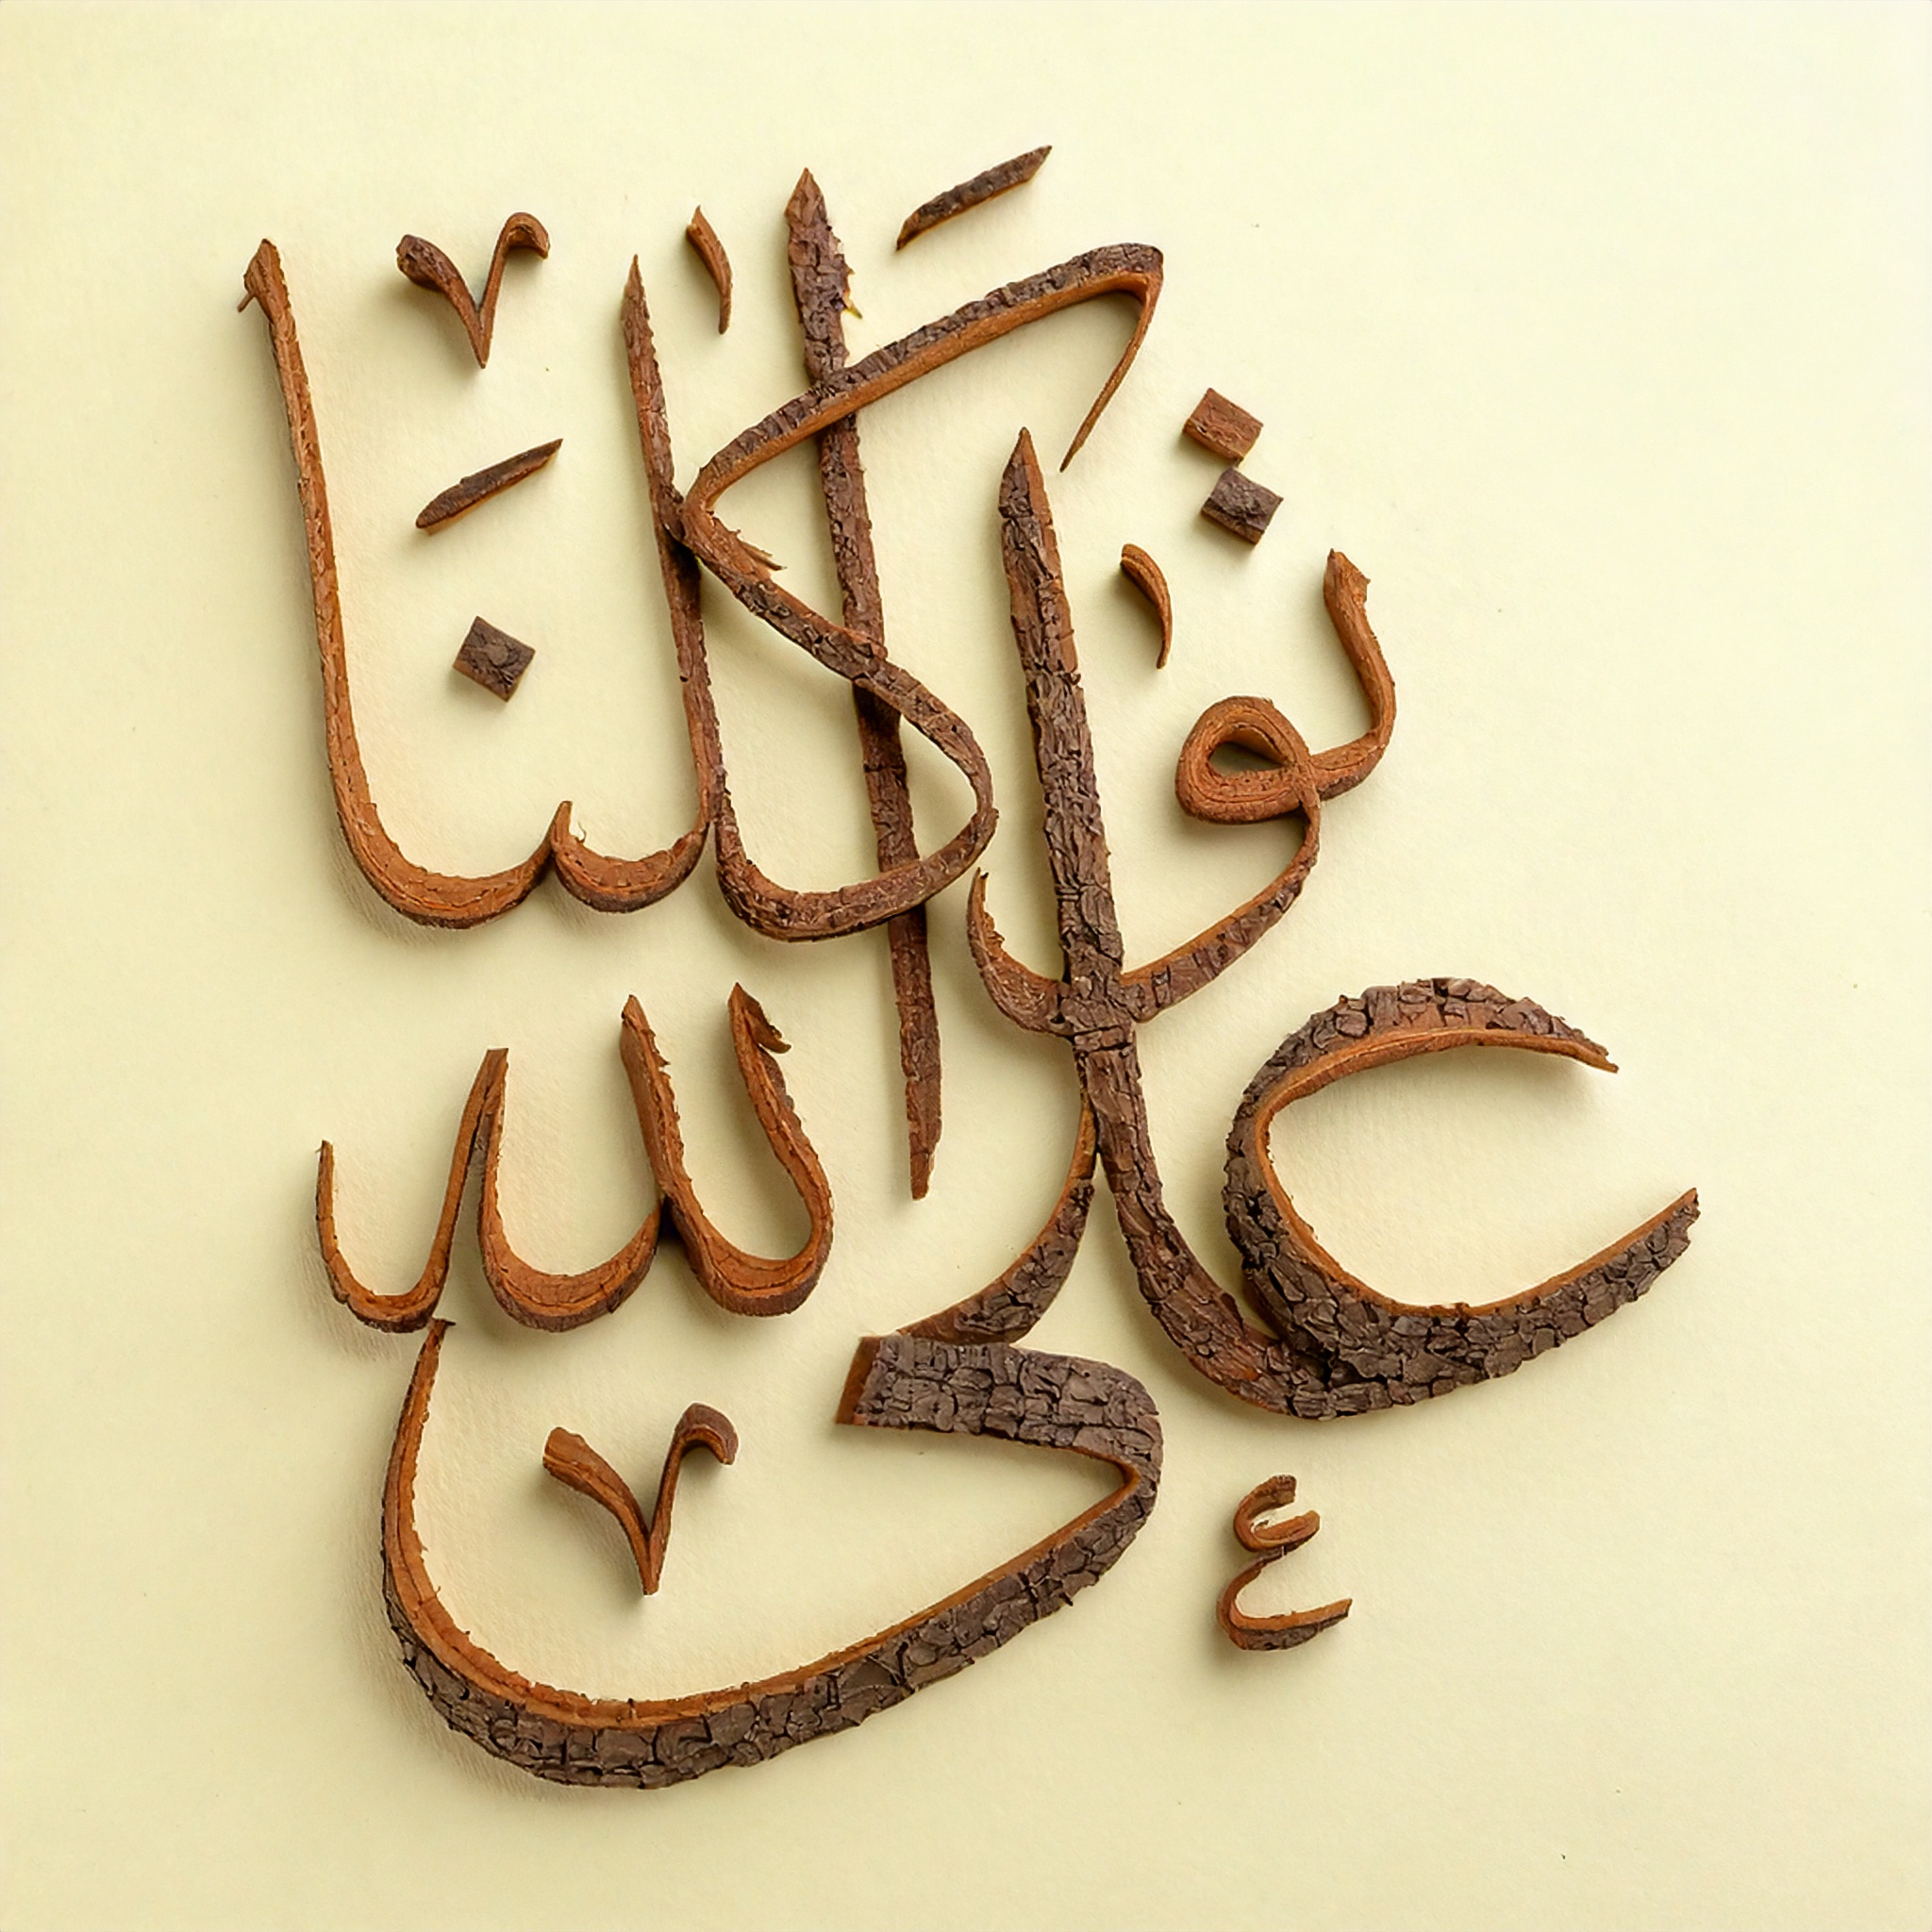 على الله توكلنا